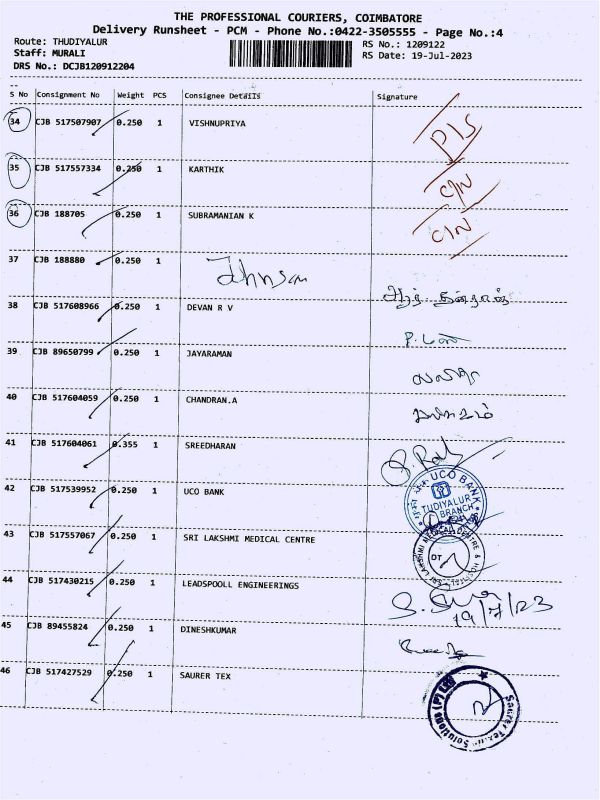 THE PROFESSIONAL COURIERS, COIMBATORE
Delivery Runsheet - PCM - Phone No.:0422-3505555 - Page No.:4
Route: THUDIYALUR RS No.: 1209122
Staff: MURALI RS Date: 19-Jul-2023
DRS No.: DCJB120912204
S No Consignment No Weight PCS Consignee Details Signature
34 CJB 517507907 0.250 1 VISHNUPRIYA
35 CJB 517557334 0.250 1 KARTHIK C/N
36 CJB 188705 0.250 1 SUBRAMANIAN K C/N
37 CJB 188880 0.250 1
38 CJB 517608966 0.250 1 DEVAN R V
39 CJB 89650799 0.250 1 JAYARAMAN
40 CJB 517604059 0.250 1 CHANDRAN.A
41 CJB 517604061 0.355 1 SREEDHARAN
42 CJB 517539952 0.250 1 UCO BANK
UCO BANK
TUDIYALUR
BRANCH
43 CJB 517557067 0.250 1 SRI LAKSHMI MEDICAL CENTRE
44 CJB 517430215 0.250 1 LEADSPOOLL ENGINEERINGS
19/7/23
45 CJB 89455824 0.250 1 DINESHKUMAR
46 CJB 517427529 0.250 1 SAURER TEX
Saurer Tex Solutions (P) Ltd